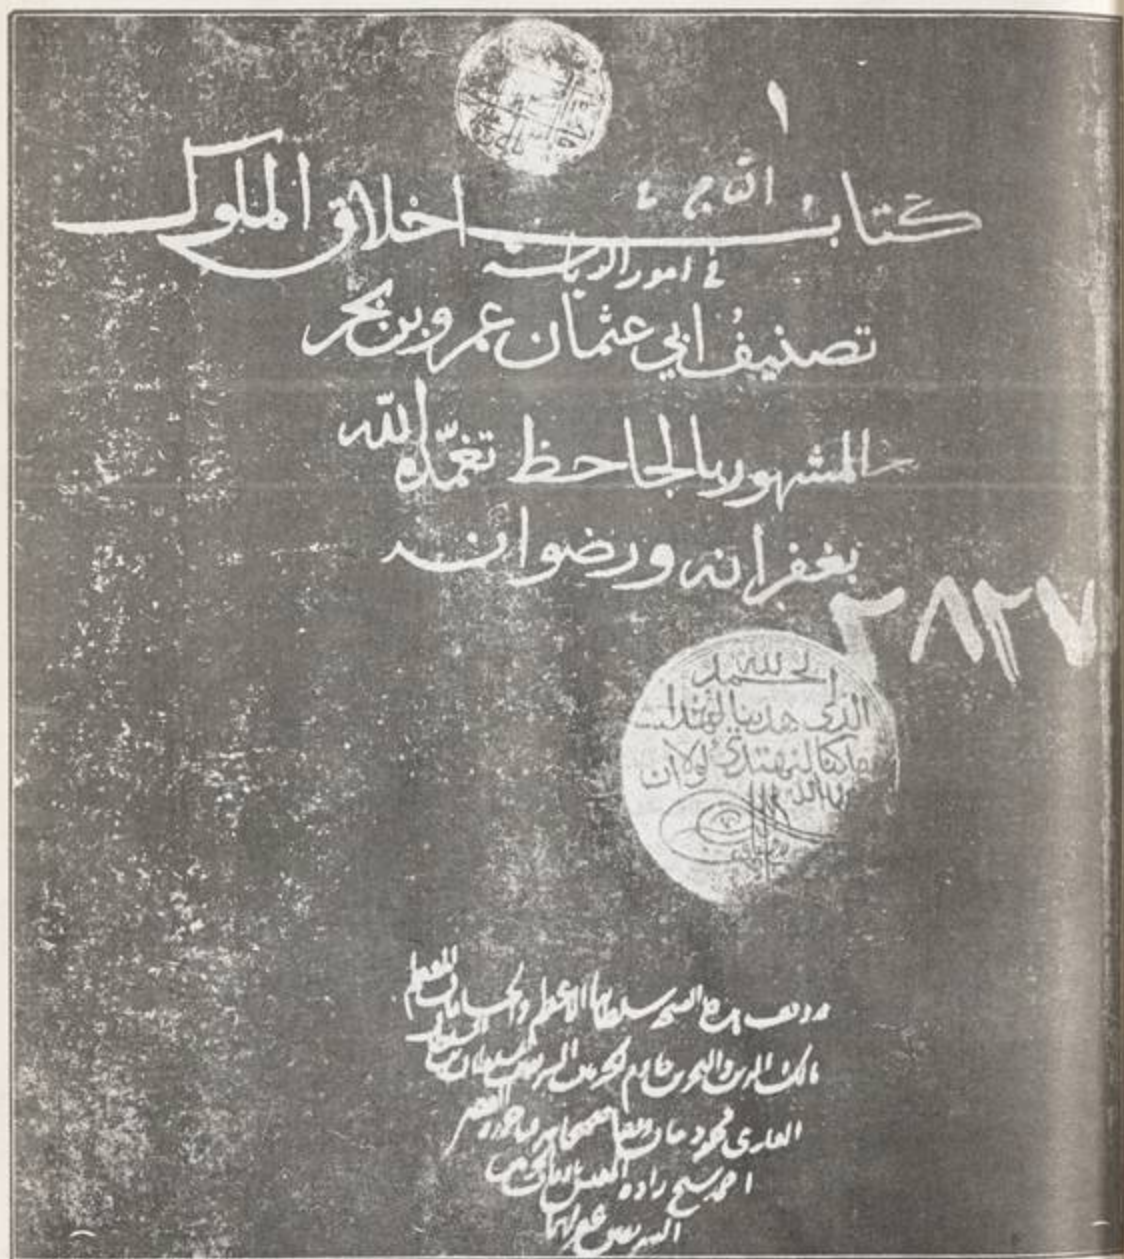 ١
التاج
كتاب اخلاق الملوك
في امور الرياسة
تصنيف ابي عثمان عمرو بن بحر
المشهور بالجاحظ تغمّده الله
بغفرانه ورضوانه
٢٨٢٧
الحمد لله
الذي هدينا لهذا
وما كنا لنهتدي لولا ان
هدانا الله
قد وقف هذه النسخة سلطاننا الاعظم والخاقان المعظم
مالك البرين والبحرين خادم الحرمين الشريفين السلطان بن السلطان
السلطان الغازى محمود خان
احمد شيخ زاده المفتش باوقاف الحرمين
الشريفين غفر لهما